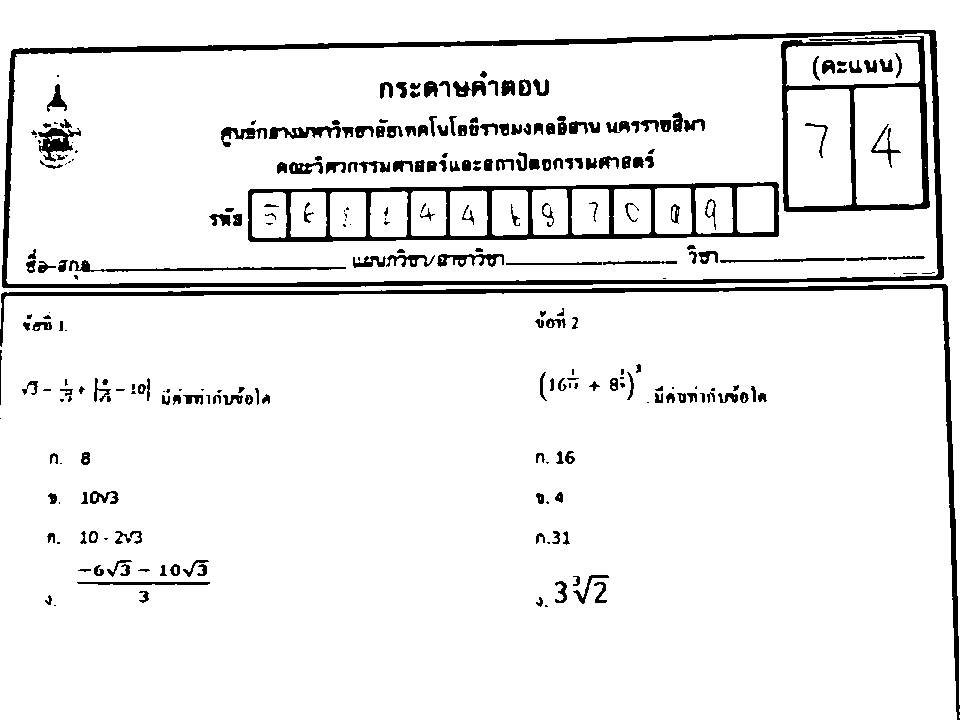 (คะแนน)
7 4
กระดาษคำตอบ
ศูนย์กลางมหาวิทยาลัยเทคโนโลยีราชมงคลอีสาน นครราชสีมา
คณะวิศวกรรมศาสตร์และสถาปัตยกรรมศาสตร์
รหัส
ชื่อ-สกุล แผนกวิชา/สาขาวิชา วิชา
ข้อที่ 1.
มีค่าเท่ากับข้อใด
ก. 8
ข. 10√3
ค. 10 - 2√3
ง. (-6√3 - 10√3)/3
ข้อที่ 2
มีค่าเท่ากับข้อใด
ก. 16
ข. 4
ค.31
ง. 3∛2